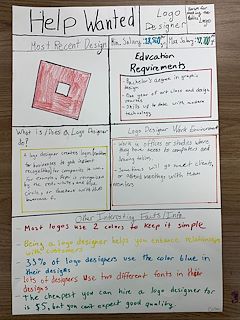 Help Wanted
Logo
Designer
Most Recent Design
Min. Salary:
Max Salary:
Education
Requirements
Bachelor's degree in graphic
design
One year of art class and design
courses
Skills up to date with modern
technology
What is/Does a Logo Designer
do?
Logo Designer Work Environment
A logo designer creates logos
for businesses to get instant
for companies to
for example Pepsi is
by the red, white and blue
Circle, or Facebook with its
Work in offices or studios where
they have access to computers and
drawing tables.
Sometimes will go meet clients,
or attend meetings with team
members
Other Interesting Facts/Info
Most logos use 2 colors to keep it simple
Being a logo designer helps you enhance relationships
with customers
33% of logo designers use the color blue in
their designs
Lots of designers use two different fonts in their
designs
The cheapest you can hire a logo designer for
is $5, but you can't expect good quality.